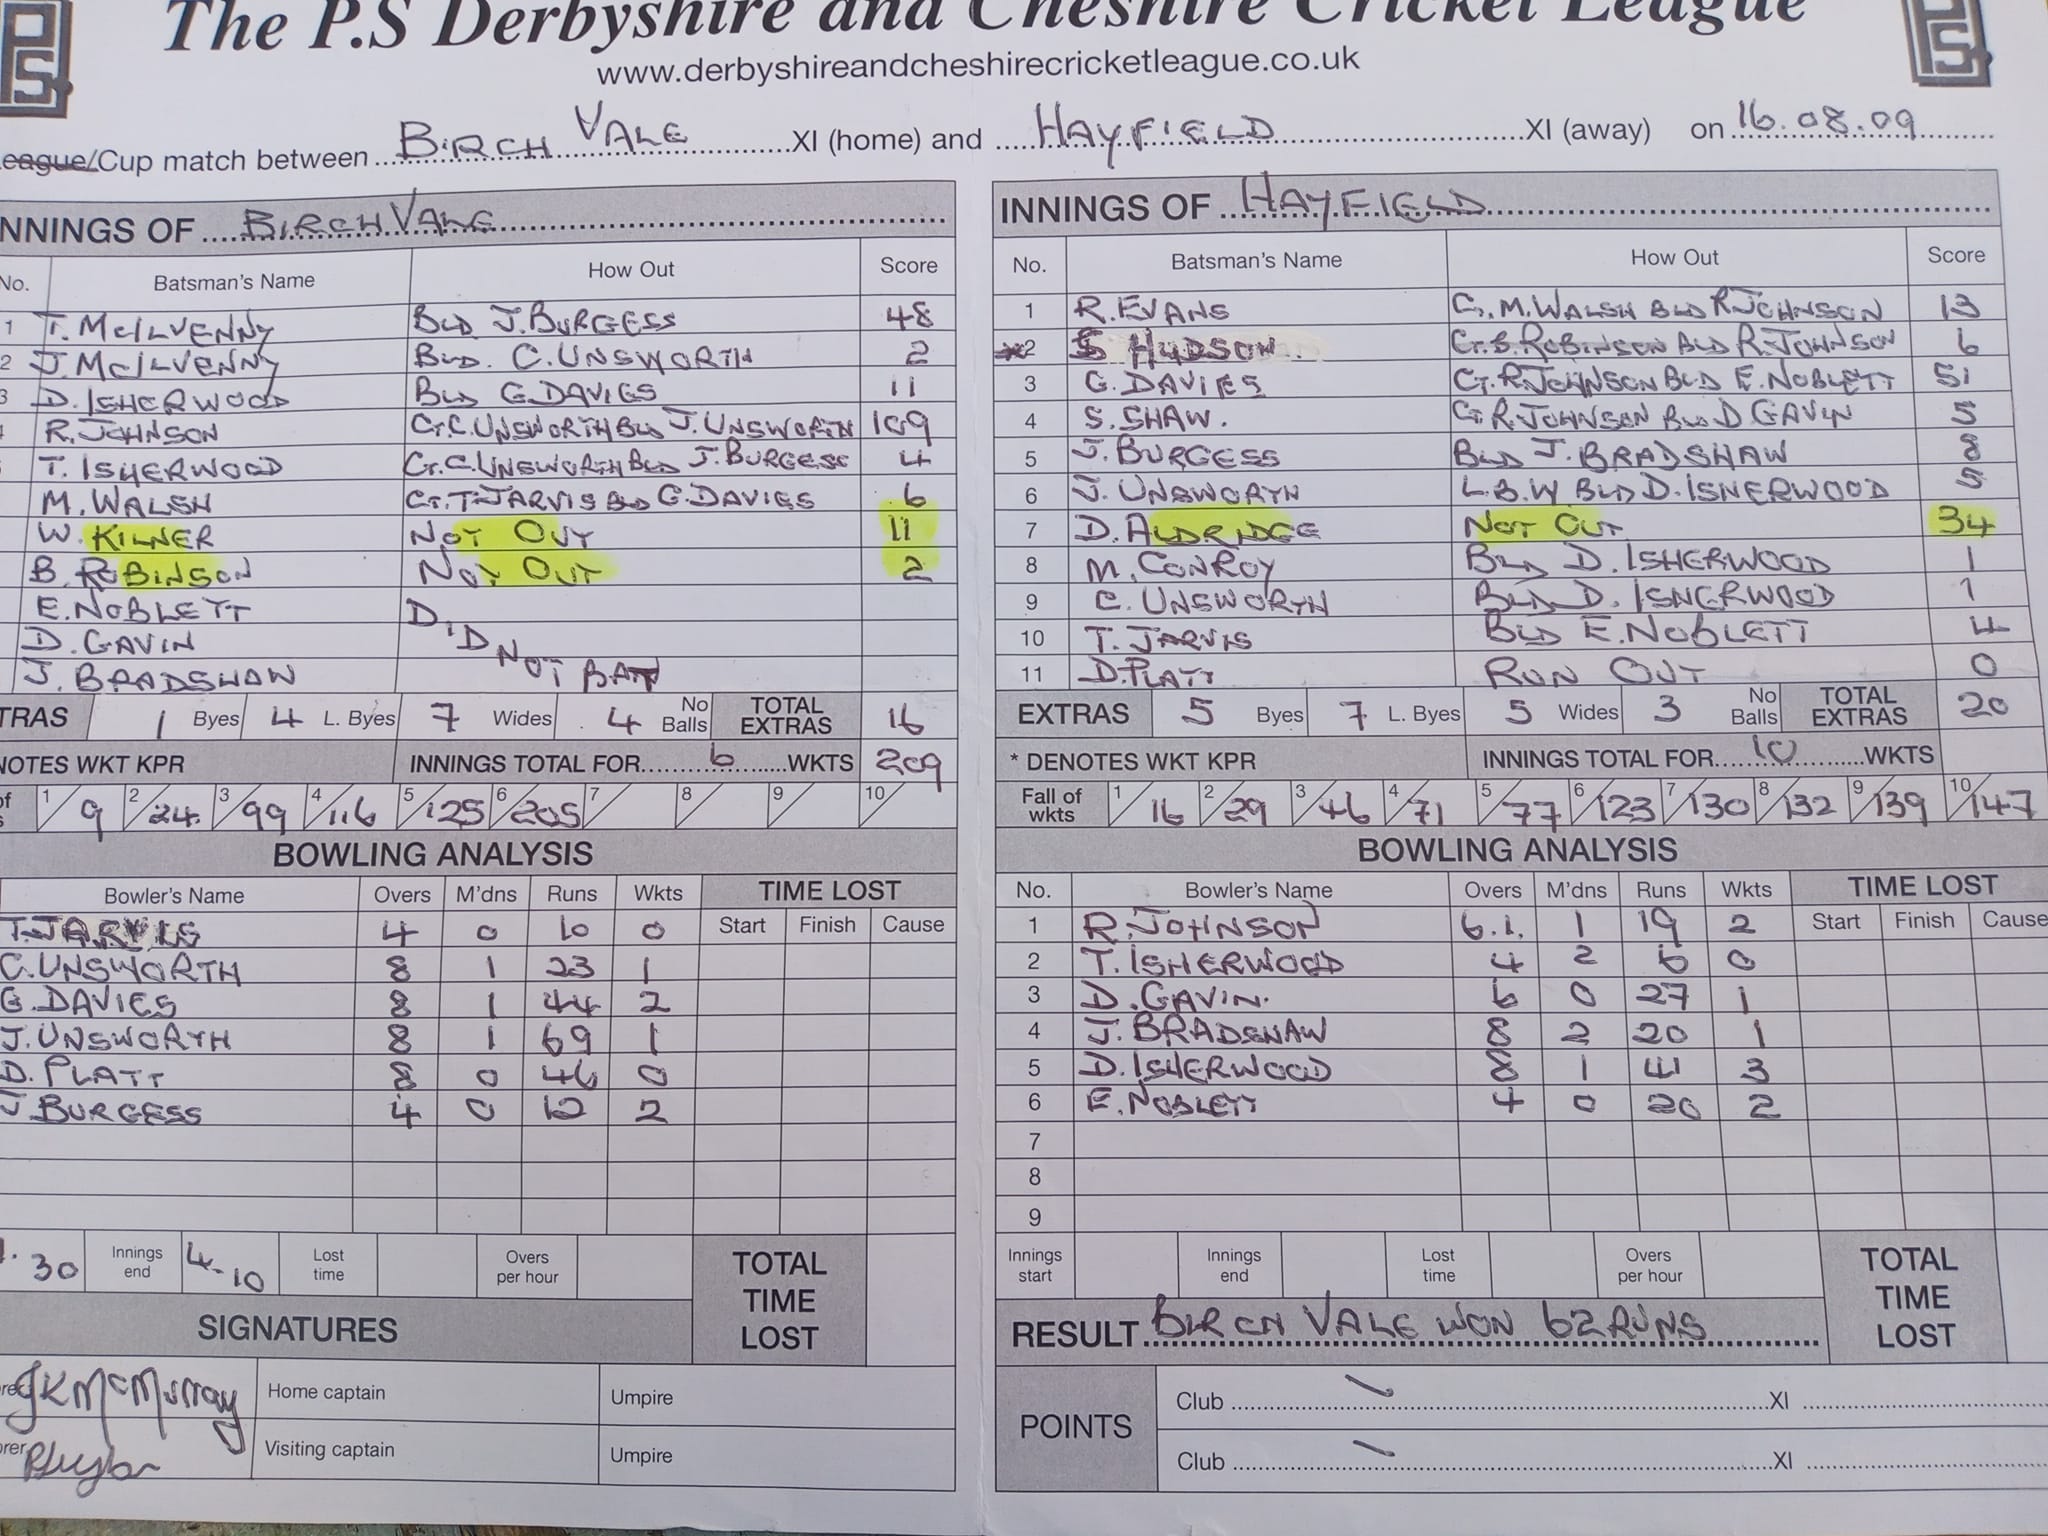 The P.S Derbyshire and Cheshire Cricket League
www.derbyshireandcheshirecricketleague.co.uk
PS
PS
eague/Cup match between BIRCH VALE XI (home) and HAYFIELD XI (away) on 16.08.09
NNINGS OF BIRCH VALE
No. Batsman's Name How Out Score
1 T. McILVENNY BLD J. BURGESS 48
2 J. McILVENNY BLD. C. UNSWORTH 2
3 D. ISHERWOOD BLD G. DAVIES 11
R. JOHNSON CT. C. UNSWORTH BLD J. UNSWORTH 109
T. ISHERWOOD CT. C. UNSWORTH BLD J. BURGESS 4
M. WALSH CT. T. JARVIS BLD G. DAVIES 6
W. KILNER NOT OUT 11
B. ROBINSON NOT OUT 2
E. NOBLETT DID NOT BAT
D. GAVIN
J. BRADSHAW
TRAS 1 Byes 4 L. Byes 7 Wides 4 No Balls TOTAL EXTRAS 16
NOTES WKT KPR INNINGS TOTAL FOR 6 WKTS 209
of 1 / 9 2 / 24 3 / 99 4 / 116 5 / 125 6 / 205 7 / 8 / 9 / 10 /
BOWLING ANALYSIS
Bowler's Name Overs M'dns Runs Wkts TIME LOST
Start Finish Cause
T. JARVIS 4 0 10 0
C. UNSWORTH 8 1 23 1
G. DAVIES 8 1 44 2
J. UNSWORTH 8 1 69 1
D. PLATT 8 0 46 0
J. BURGESS 4 0 12 2
30 Innings end 4-10 Lost time Overs per hour TOTAL TIME LOST
SIGNATURES
JK McMurray Home captain Umpire
orer Visiting captain Umpire
INNINGS OF HAYFIELD
No. Batsman's Name How Out Score
1 R. EVANS CT. M. WALSH BLD R. JOHNSON 13
*2 S HUDSON CT. B. ROBINSON BLD R. JOHNSON 6
3 G. DAVIES CT. R. JOHNSON BLD E. NOBLETT 51
4 S. SHAW. CT R. JOHNSON BLD D GAVIN 5
5 J. BURGESS BLD J. BRADSHAW 8
6 J. UNSWORTH L.B.W BLD D. ISHERWOOD 5
7 D. ALDRIDGE NOT OUT 34
8 M. CONROY BLD D. ISHERWOOD 1
9 C. UNSWORTH BLD D. ISHERWOOD 1
10 T. JARVIS BLD E. NOBLETT 4
11 D. PLATT RUN OUT 0
EXTRAS 5 Byes 7 L. Byes 5 Wides 3 No Balls TOTAL EXTRAS 20
* DENOTES WKT KPR INNINGS TOTAL FOR 10 WKTS
Fall of wkts 1 / 16 2 / 29 3 / 46 4 / 71 5 / 77 6 / 123 7 / 130 8 / 132 9 / 139 10 / 147
BOWLING ANALYSIS
No. Bowler's Name Overs M'dns Runs Wkts TIME LOST
Start Finish Cause
1 R. JOHNSON 6.1. 1 19 2
2 T. ISHERWOOD 4 2 6 0
3 D. GAVIN. 6 0 27 1
4 J. BRADSHAW 8 2 20 1
5 D. ISHERWOOD 8 1 41 3
6 E. NOBLETT 4 0 20 2
7
8
9
Innings start Innings end Lost time Overs per hour TOTAL TIME LOST
RESULT BIRCH VALE WON 62 RUNS
POINTS Club XI
Club XI